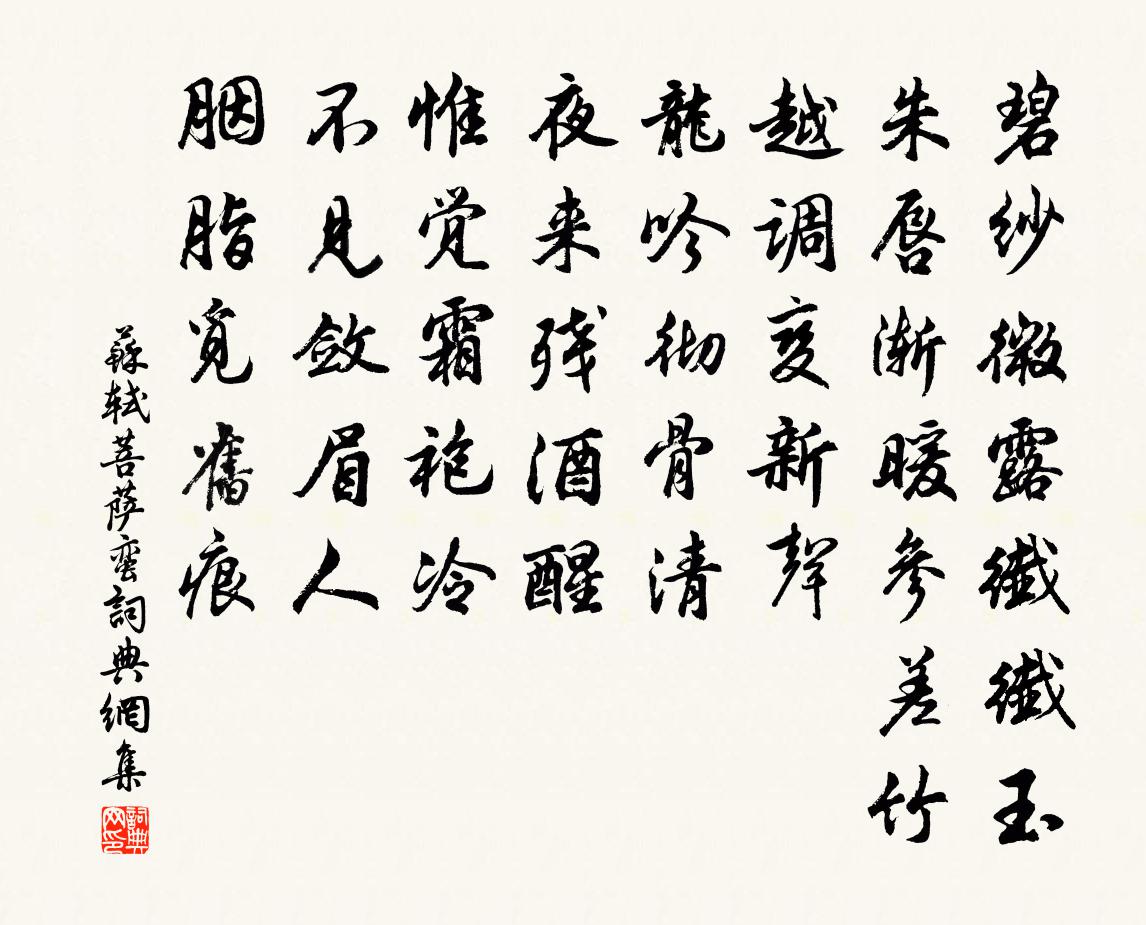 碧纱微露纖纖玉
朱唇渐暖参差竹
越调变新聲
龍吟彻骨清
夜来残酒醒
惟觉霜袍冷
不見敛眉人
胭脂覓舊痕
蘇轼菩萨蛮詞典網集
詞典网印